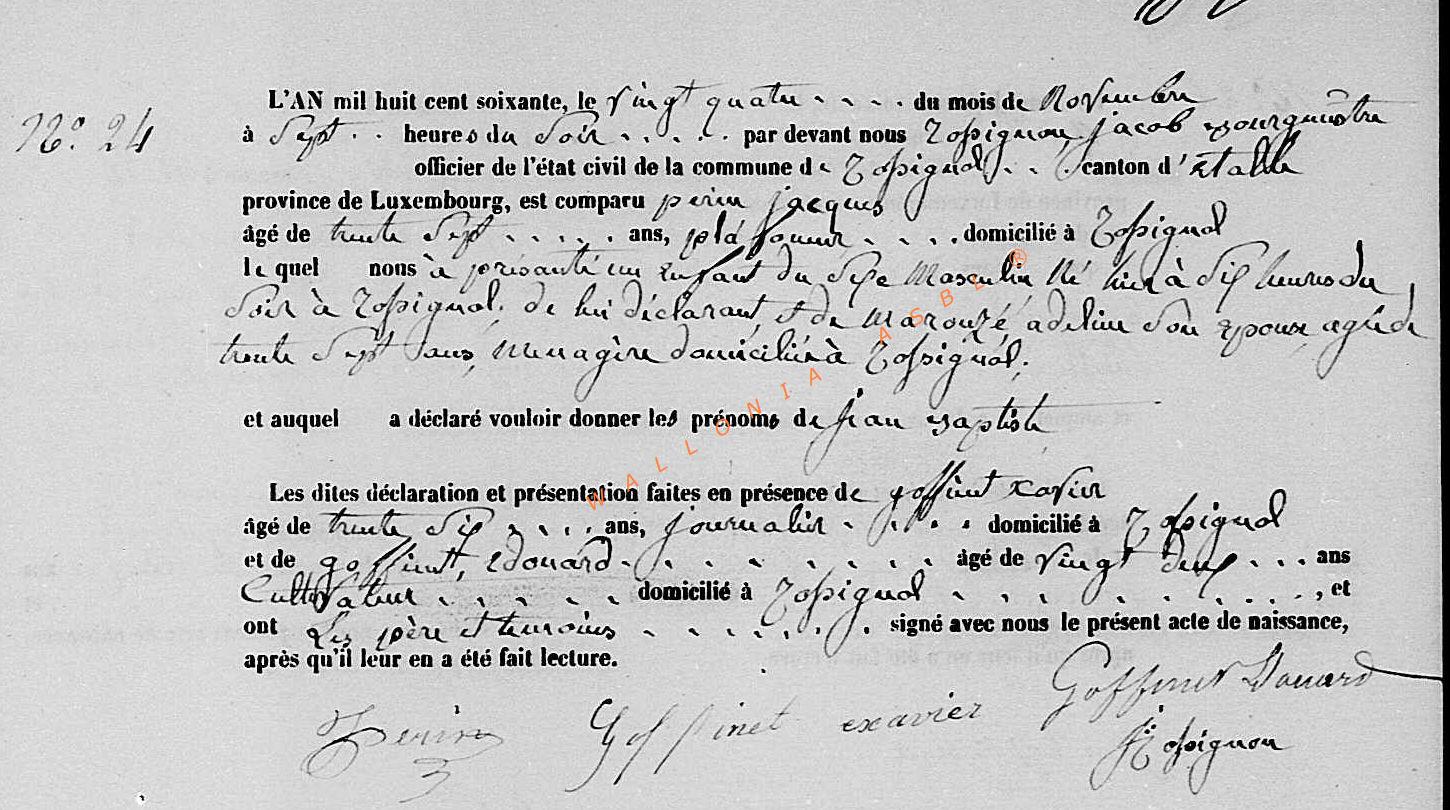 N.° 24
L'AN mil huit cent soixante, le vingt quatre . . . . du mois de Novembre
à sept . . heures du soir . . . . . par devant nous Rossignon, jacob bourgmestre
officier de l'état civil de la commune de Rossignol . . . canton d'Etalle
province de Luxembourg, est comparu perin jacques
âgé de trente sept . . . . . ans, plafoneur . . . . domicilié à Rossignol
le quel nous à présanté un Enfant du sexe Masculin Né hier à six heures du
soir à Rossignol, de lui déclarant, et de Marouzé adeline son Epouse, agée de
trente sept ans, Menagère domiciliée à Rossignol.
et auquel a déclaré vouloir donner les prénoms de jean Baptiste
Les dites déclaration et présentation faites en présence de goffinet xavier
âgé de trente six . . . . ans, journalier . . . . domicilié à Rossignol
et de goffinet, Edouard . . . . . . . . âgé de vingt deux . . . ans
Cultivateur . . . . . domicilié à Rossignol . . . . . . . . . , et
ont Les père et temoins . . . . . . . signé avec nous le présent acte de naissance,
après qu'il leur en a été fait lecture.
Perin Goffinet exavier Goffinet Douard
J Rossignon
WALLONIA ASBL ®